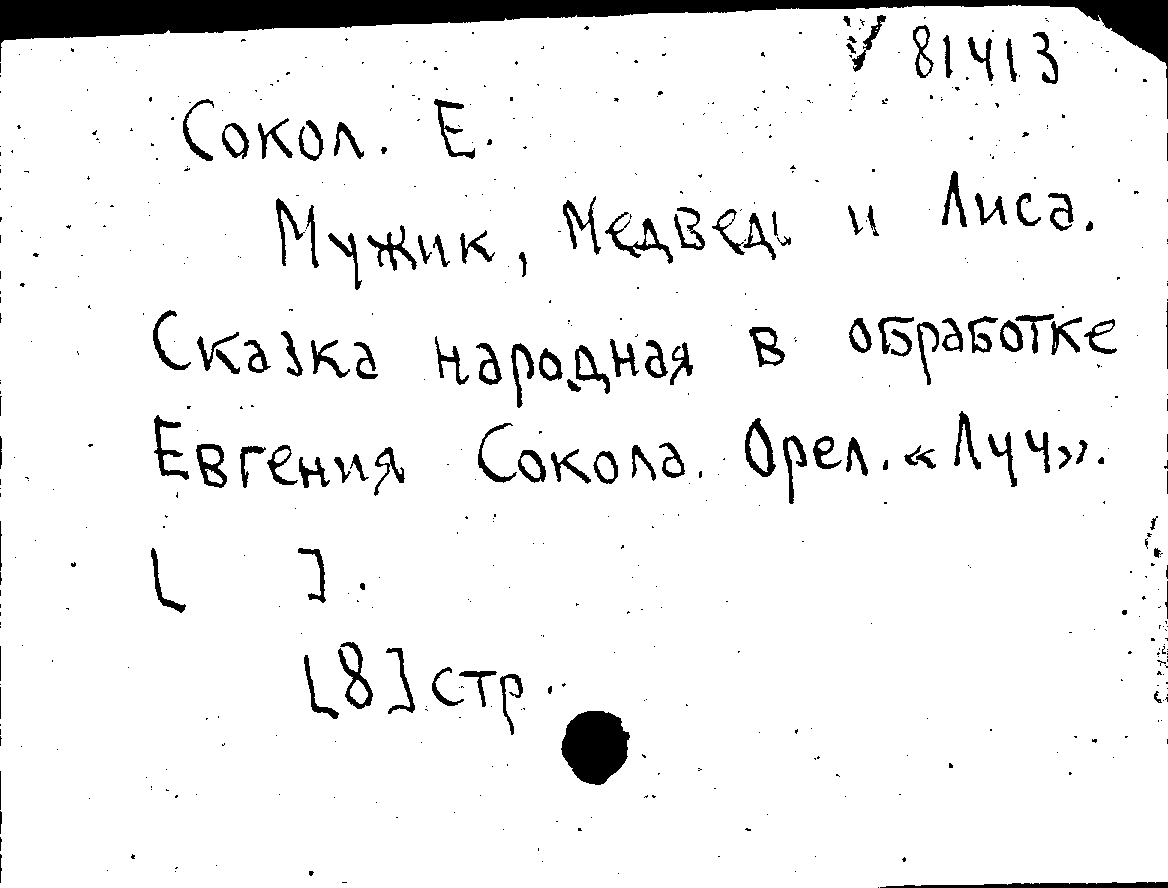 V 81413
Сокол. Е.
Мужик, Медведь и Лиса.
Сказка народная в обработке
Евгения Сокола. Орел. «Луч».
[ ].
[8] стр.